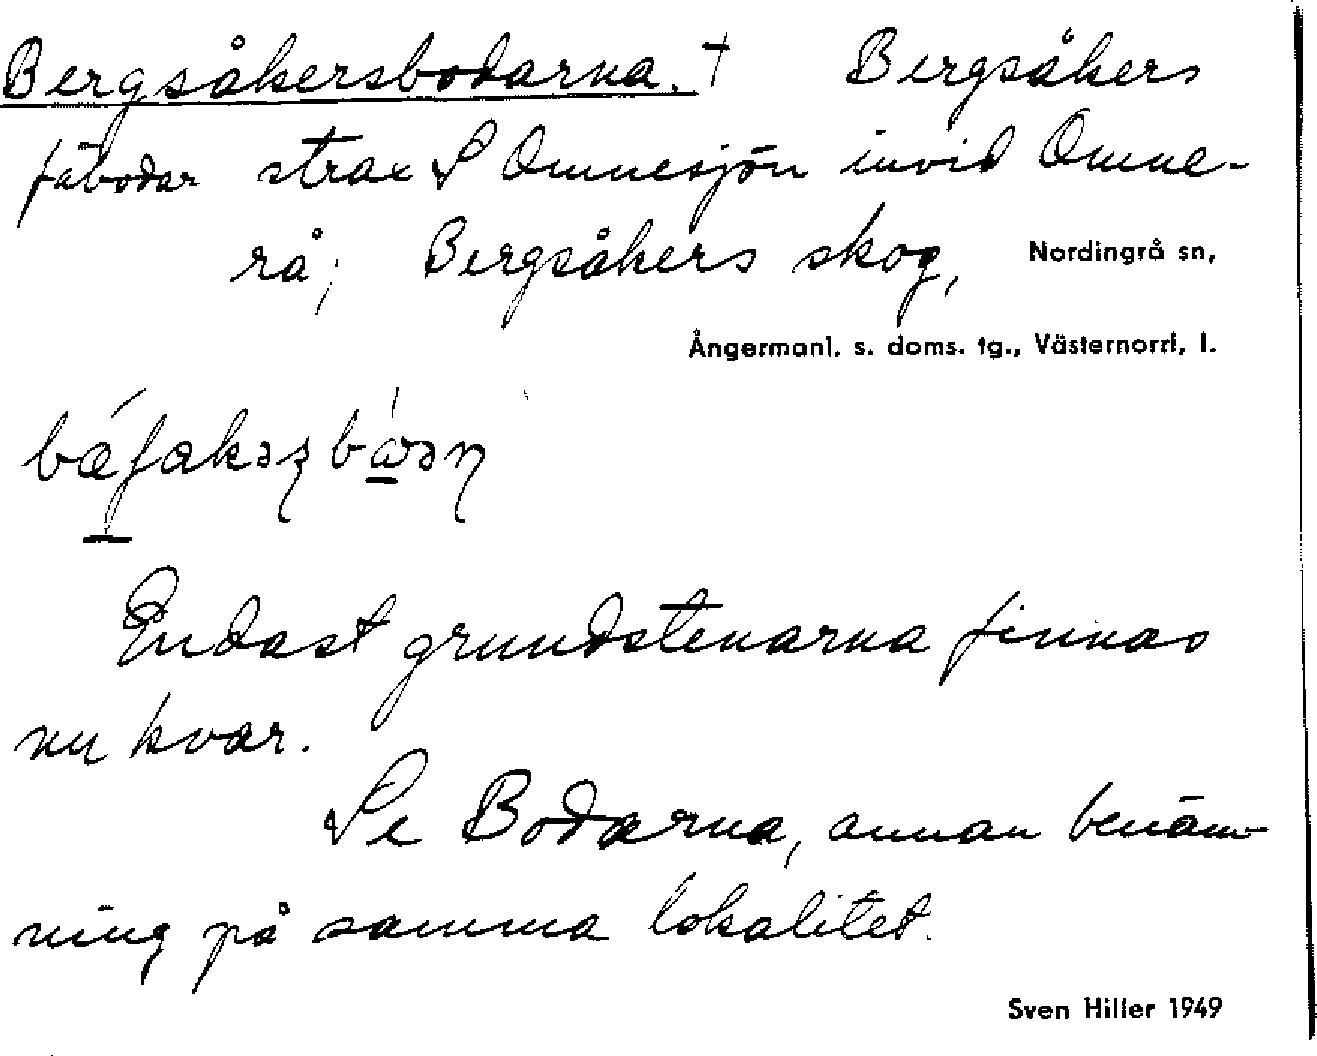 Bergsåkersbodarna. † Bergsåkers
fäbodar strax S Omnesjön invid Omne-
rå; Bergsåkers skog, Nordingrå sn,
Ångermanl. s. doms. tg., Västernorrl. l.
Endast grundstenarna finnas
nu kvar.
Se Bodarna, annan benäm-
ning på samma lokalitet.
Sven Hiller 1949